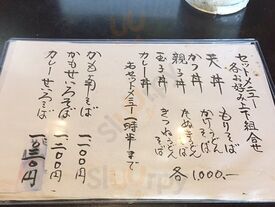 セットメニュー
各お好み上下組合せ
天丼
かつ丼
親子丼
玉子丼
カレー丼
もりそば
かけうどん
たぬきそば
きつねうどん
各1,000.-
右セットメニュー一時半まで
かも南そば 一一〇〇円
かもせいろそば 一二〇〇円
カレーせいろそば 円